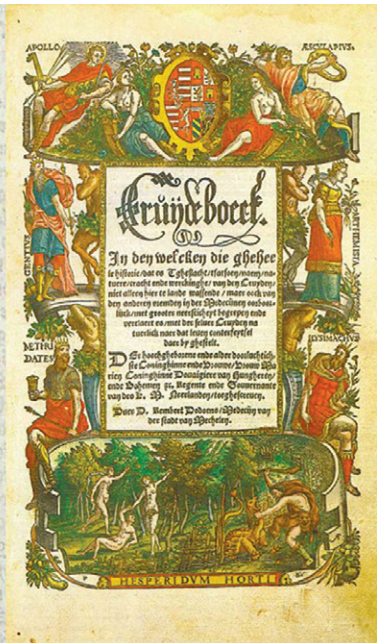 APOLLO.
ÆSCVLAPIVS.
GENTIVS
ARTEMISIA
MITHRI
DATES
LYSIMACHVS
Cruÿdeboeck.
In den welcken die gheheele
le historie/dat es Tgheslacht/tfatsoen/naem/na-
tuere/cracht ende werckinghe/van den Cruyden/
niet alleen hier te lande wassende/maer oock van
den anderen vremden in der Medecijnen oorboor-
lijck/met grooter neersticheyt begrepen ende
verclaert es/met der seluer Cruyden na-
tuerlick naer dat leuen conterfeytsel
daer by ghestelt.
Der hoochgheborene ende alder doorluchtich-
ste Coninghinne ende Vrouwe/Vrouw Ma-
rien Coninghinne Douaigiere van Hungheren/
ende Bohemen zc. Regente ende Gouvernante
van des K. M. Neerlanden/toegheschreuen.
Duer D. Rembert Dodoens/Medecijn van
der stadt van Mechelen.
HESPERIDVM HORTI